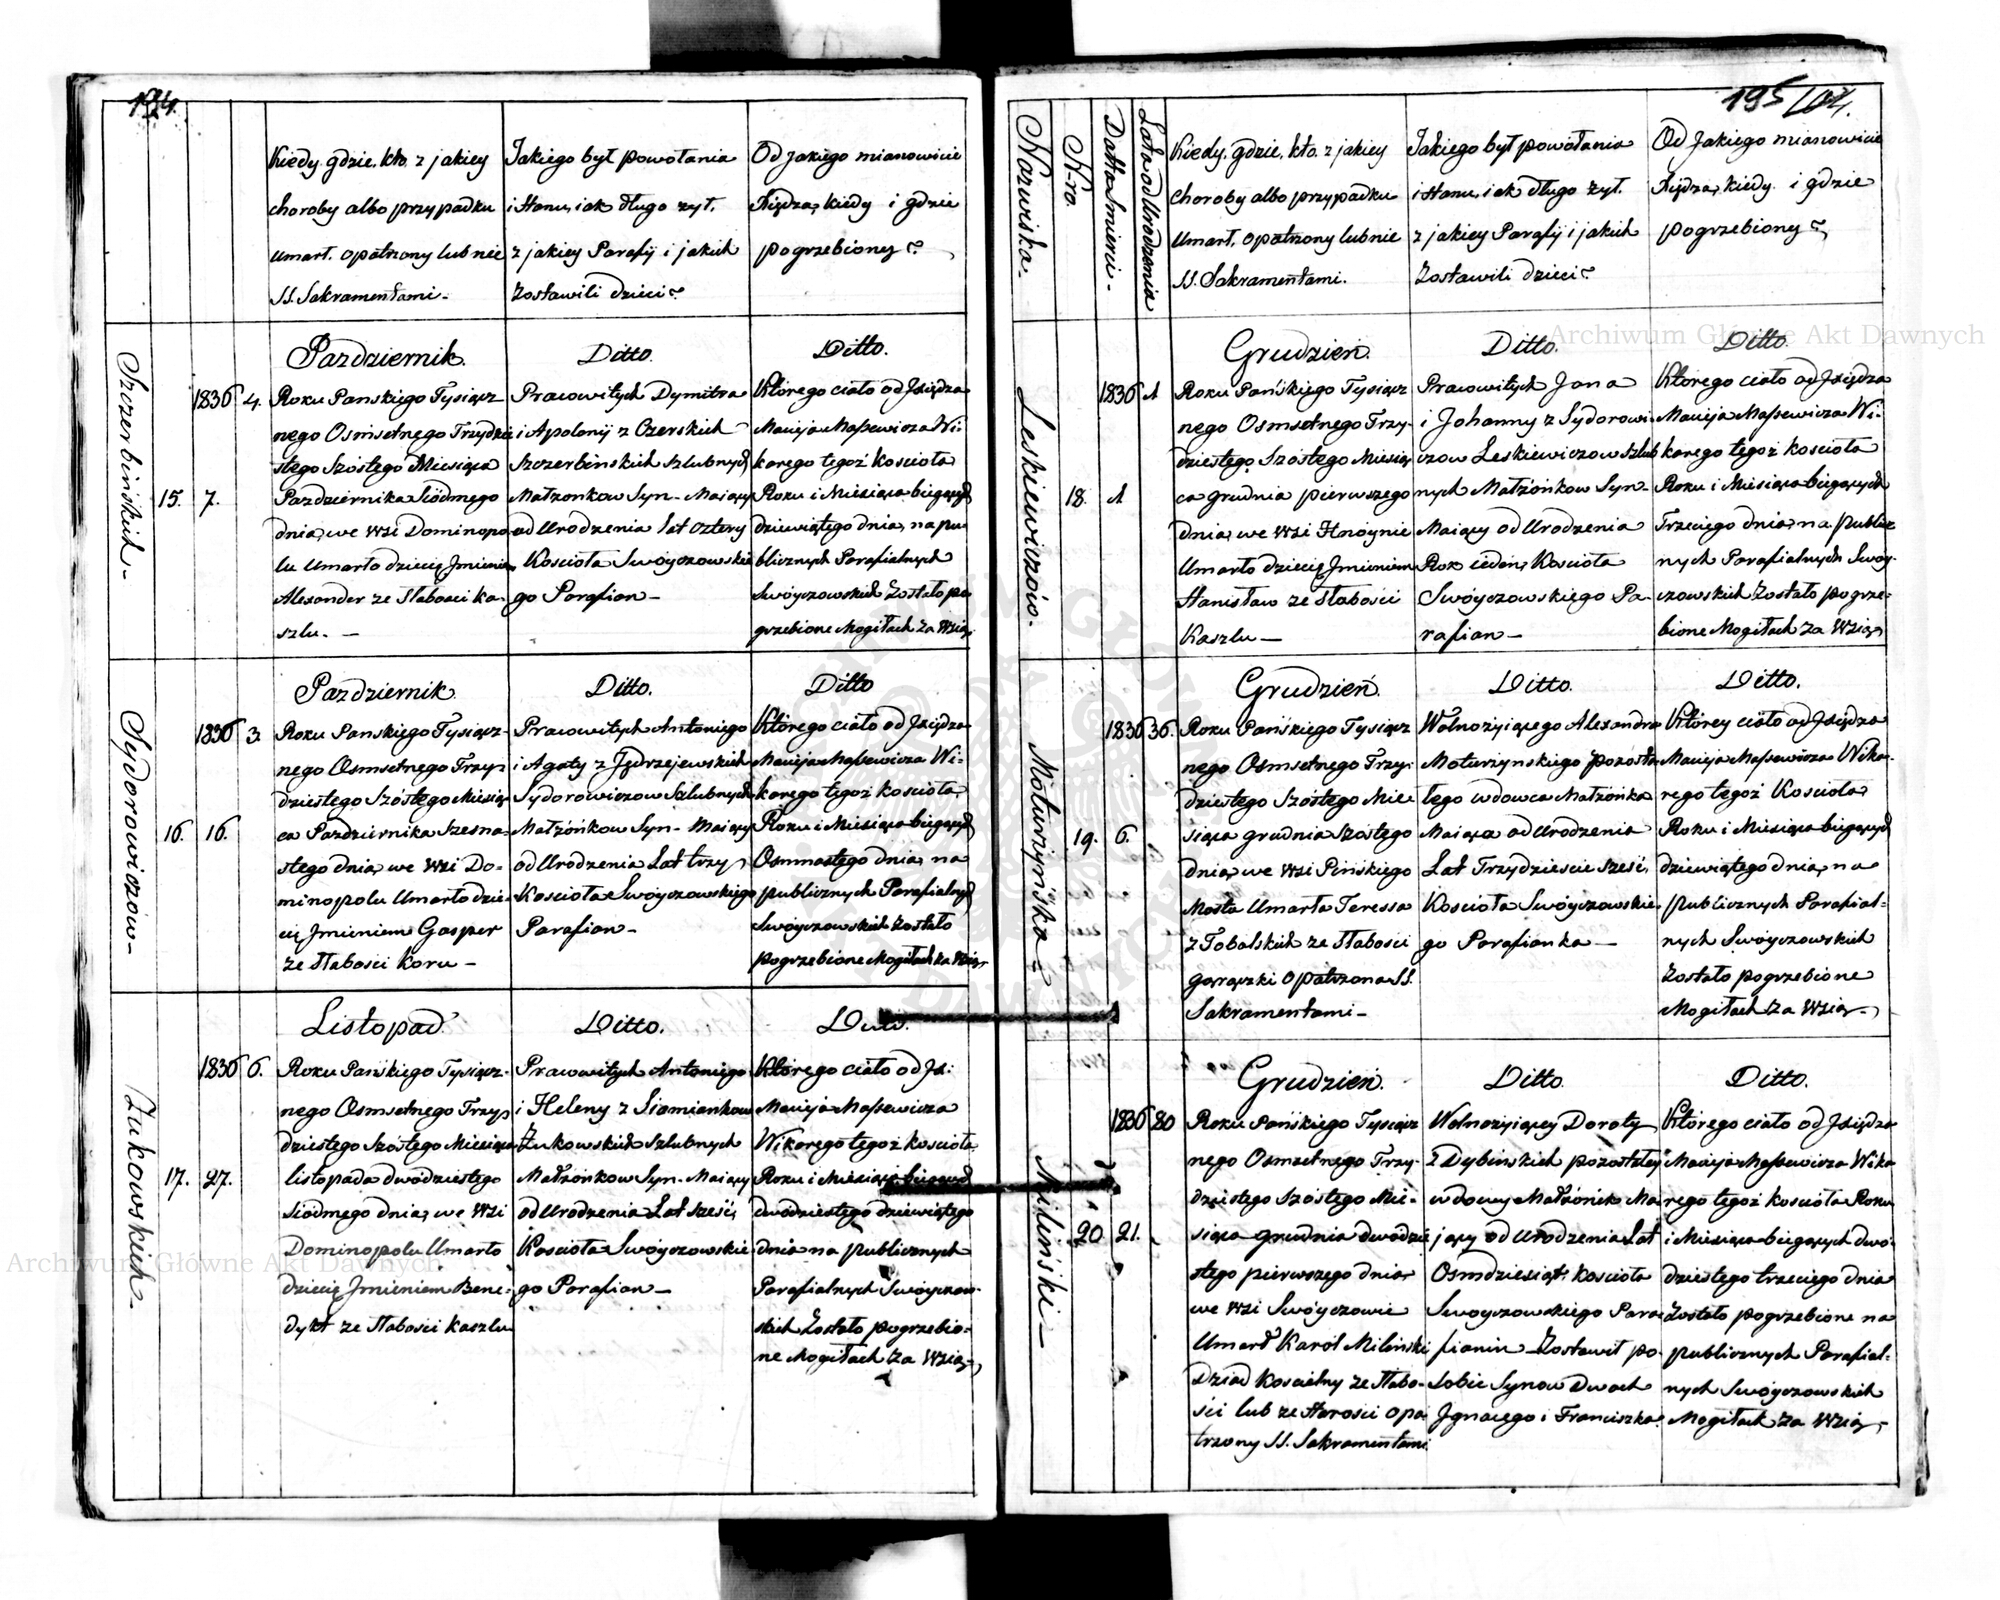 194.
Kiedy, gdzie, kto, z jakiey
choroby albo przypadku
umarł, opatrzony lub nie
SS. Sakramentami.
Jakiego był powołania
i stanu, iak długo żył,
z jakiey Parafij i jakich
zostawili dzieci?
Od jakiego mianowicie
Xiędza, kiedy i gdzie
pogrzebiony?
Szczerbińskich
15.
1836
7.
4.
Pazdziernik.
Roku Panskiego Tysiącz
nego Osmsetnego Trzydzie
stego Szóstego Miesiąca
Pazdziernika Siódmego
dnia, we Wsi Dominopo
lu umarło dziecię Jmieniem
Alexander ze słabosci ka
szlu. —
Ditto.
Pracowitych Dymitra
i Apolonij z Czerskich
Szczerbinskich szlubnych
Małżonkow Syn - Maiący
od Urodzenia lat cztery
Kościoła Swóyczowskie
go Parafian —
Ditto.
Którego ciało od Xiędza
Macieja Massewicza Wi-
karego tegoż Kościoła
Roku i Miesiąca bieżących
dziewiątego dnia, na pu
blicznych Parafialnych
Swóyczowskich zostało po
grzebione Mogiłach za Wsią,
Sydorowiczow
16.
1836
16.
3.
Pazdziernik
Roku Panskiego Tysiącz-
nego Osmsetnego Trzy-
dziestego Szóstego Miesią
ca Pazdziernika Szesna-
stego dnia, we Wsi Do-
minopolu Umarło dzie-
cię Jmieniem Gasper
ze słabosci Koru —
Ditto.
Pracowitych Antoniego
i Agaty z Jędrzejewskich
Sydorowiczow Szlubnych
Małżónkow Syn - Maiący
od Urodzenia Lat trzy,
Kościoła Swóyczowskiego
Parafian —
Ditto
Którego ciało od Xiędza
Macieja Massewicza Wi-
karego tegoż Kościoła
Roku i Miesiąca bieżących
Osmnastego dnia, na
publicznych Parafialnych
Swóyczowskich zostało
pogrzebione Mogiłach za Wsią,
Żukowskich
17.
1836
27.
6.
Listopad
Roku Pańskiego Tysiącz-
nego Osmsetnego Trzy
dziestego Szóstego Miesiąca
listopada dwódziestego
siódmego dnia, we Wsi
Dominopolu Umarło
dziecię Jmieniem Bene-
dykt ze słabosci kaszlu
Ditto.
Pracowitych Antoniego
i Heleny z Siomiankow
Żukowskich Szlubnych
Małżónkow Syn - Maiący
od Urodzenia Lat sześć,
Kościoła Swóyczowskie-
go Parafian —
Ditto.
Którego ciało od Xi:
Macieja Massewicza
Wikarego tegoż kościoła
Roku i Miesiąca bieżących
dwodziestego dziewiątego
dnia na publicznych
Parafialnych Swóyczow-
skich zostało pogrzebio-
ne Mogiłach za Wsią,
195
104.
Nazwiska.
N-ro.
Datta Smierci.
Lata od Urodzenia
Kiedy, gdzie, kto, z jakiey
choroby albo przypadku
umarł, opatrzony lub nie
SS. Sakramentami.
Jakiego był powołania
i stanu, iak długo żył,
z jakiey Parafij i jakich
zostawili dzieci?
Od Jakiego mianowicie
Xiędza, kiedy i gdzie
pogrzebiony?
Leskiewiczow.
18.
1836
1
1
Grudzień.
Roku Pańskiego Tysiącz
nego Osmsetnego Trzy-
dziestego Szóstego Miesią
ca grudnia pierwszego
dnia, we wsi Hnoynie
Umarło dziecię Jmieniem
Stanisław ze słabości
Kaszlu —
Ditto.
Pracowitych Jana
i Johanny z Sydorowi-
czow Leskiewiczow szlub
nych Małżónkow Syn -
Maiący od Urodzenia
Rok ieden, Kościoła
Swóyczowskiego Pa-
rafian —
Ditto
Którego ciało od Xiędza
Macieja Massewicza Wi-
karego tegoż kościoła
Roku i Miesiąca bieżących
Trzeciego dnia, na publicz
nych Parafialnych Swóy-
czowskich zostało pogrze-
bione Mogiłach za Wsią,
Moturzyńska
19.
1836
6.
36.
Grudzień.
Roku Pańskiego Tysiącz
nego Osmsetnego Trzy-
dziestego Szóstego Mie-
siąca grudnia Szóstego
dnia, we wsi Pińskiego
Mosta Umarła Teressa
z Tobalskich ze słabości
gorączki opatrzona SS.
Sakramentami —
Ditto.
Wolnożyiącego Alexandra
Moturzynskiego pozosta
łego wdowca Małżónka
Maiąca od Urodzenia
Lat Trzydzieście sześć,
Kościoła Swóyczowskie-
go Parafianka —
Ditto.
Którey ciało od Xiędza
Macieja Massewicza Wika-
rego tegoż Kościoła
Roku i Miesiąca bieżących
dziewiątego dnia, na
publicznych Parafial-
nych Swóyczowskich
zostało pogrzebione
Mogiłach za Wsią,
Miliński —
20
1836
21.
80
Grudzień.
Roku Pańskiego Tysiącz
nego Osmsetnego Trzy-
dziestego Szóstego Mie-
siąca grudnia dwódzie
stego pierwszego dnia
we wsi Swóyczowie
Umarł Karól Milinski
Dziad Koscielny ze słabo-
ści lub ze starosci opa
trzony SS. Sakramentami
Ditto
Wolnożyiącey Doroty
z Dybinskich pozostałey
wdowy Małżónk Ma-
jący od Urodzenia Lat
Osmdziesiąt, kościoła
Swoyczowskiego Para-
fianin - Zostawił po-
sobie Synow Dwoch
Jgnacego i Franciszka.
Ditto.
Którego ciało od Xiędza
Macieja Massewicza Wika
rego tegoż kościoła Roku
i Miesiąca bieżących dwó-
dziestego trzeciego dnia
zostało pogrzebione na
publicznych Parafial-
nych Swóyczowskich
Mogiłach za Wsią,
Archiwum Główne Akt Dawnych
Archiwum Główne Akt Dawnych